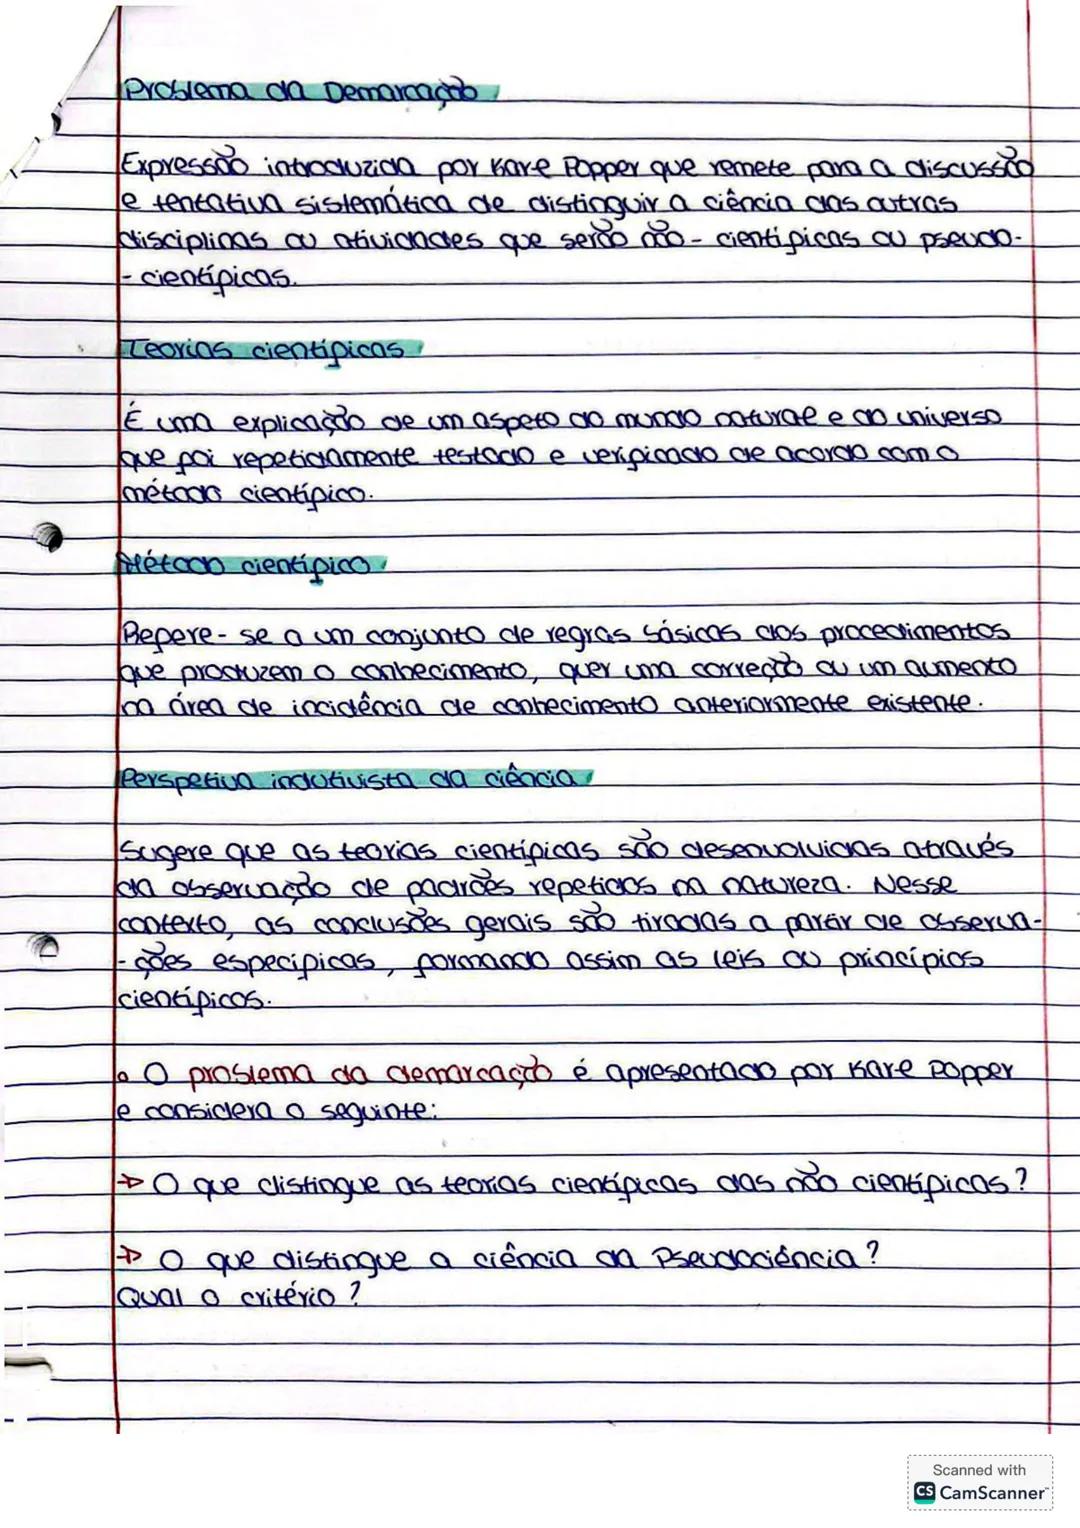 Problema da Demarcação
Expressão introduzida por Karl Popper que remete para a discussão
e tentativa sistemática de distinguir a ciência das outras
disciplinas ou atividades que serão não - científicas ou pseudo-
- científicas.
Teorias científicas
É uma explicação de um aspeto do mundo natural e do universo
que foi repetidamente testado e verificado de acordo com o
método científico.
Método científico
Refere-se a um conjunto de regras básicas dos procedimentos
que produzem o conhecimento, quer uma correção ou um aumento
na área de incidência de conhecimento anteriormente existente.
Perspetiva indutivista da ciência
Sugere que as teorias científicas são desenvolvidas através
da observação de padrões repetidos na natureza. Nesse
contexto, as conclusões gerais são tiradas a partir de observa-
-ções específicas, formando assim as leis ou princípios
científicos.
• O problema da demarcação é apresentado por Karl Popper
e considera o seguinte:
→ O que distingue as teorias científicas das não científicas?
→ O que distingue a ciência da Pseudociência?
Qual o critério?
Scanned with
CS CamScanner